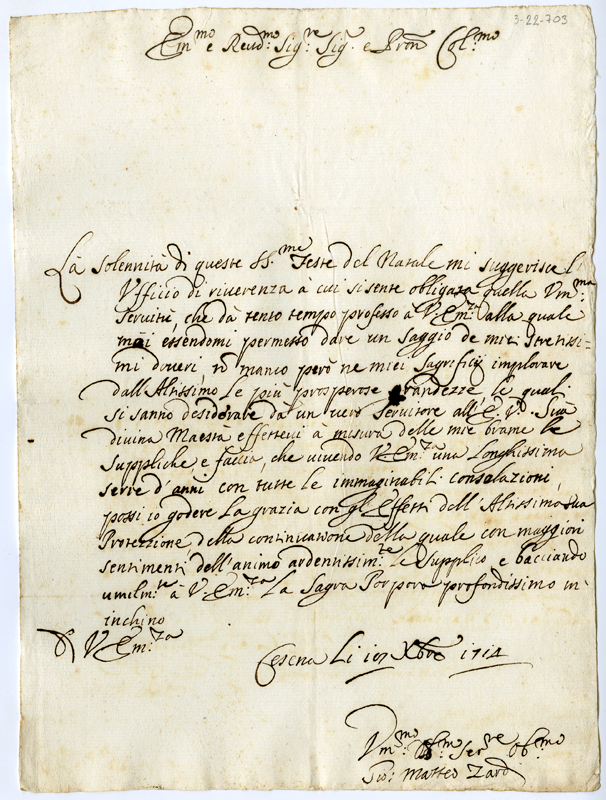 3-22-703
Em.mo e Reud.mo Sig.re Sig.r e Pron Col.mo
Là Solennità di queste SS.me Feste del Natale mi suggerisce l'
Vfficio di riuerenza à cui si sente obligata quella Vm.ma
Seruitù, che da tento tempo professo à V. Em.za alla quale
mai essendomi permesso dare un Saggio de miei stretissi-
mi doueri, nò manco però ne miei Sagrificij implorare
dall'Altissimo Le più prosperose grandezze, le quali
si sanno desiderare da un uero Seruitore all'E. V. Sua
diuina Maestà effettui à misura delle mie brame le
suppliche e faccia, che uiuendo V. Em.za una Longhissima
serie d'anni con tutte le immaginabili consolazioni,
possi io godere La grazia con gl'effetti dell'Altissima sua
Protezzione, della continuatione della quale con maggiori
sentimenti dell'animo ardentissim.te Le Supplico e bacciando
umilm.te à V. Em.za La Sagra Porpora profondissimo m'
inchino
D V. Em.za
Cesena Li 10 Xbre 1714
Vm.mo Ser.re Ob.mo
Gio: Matteo Zard